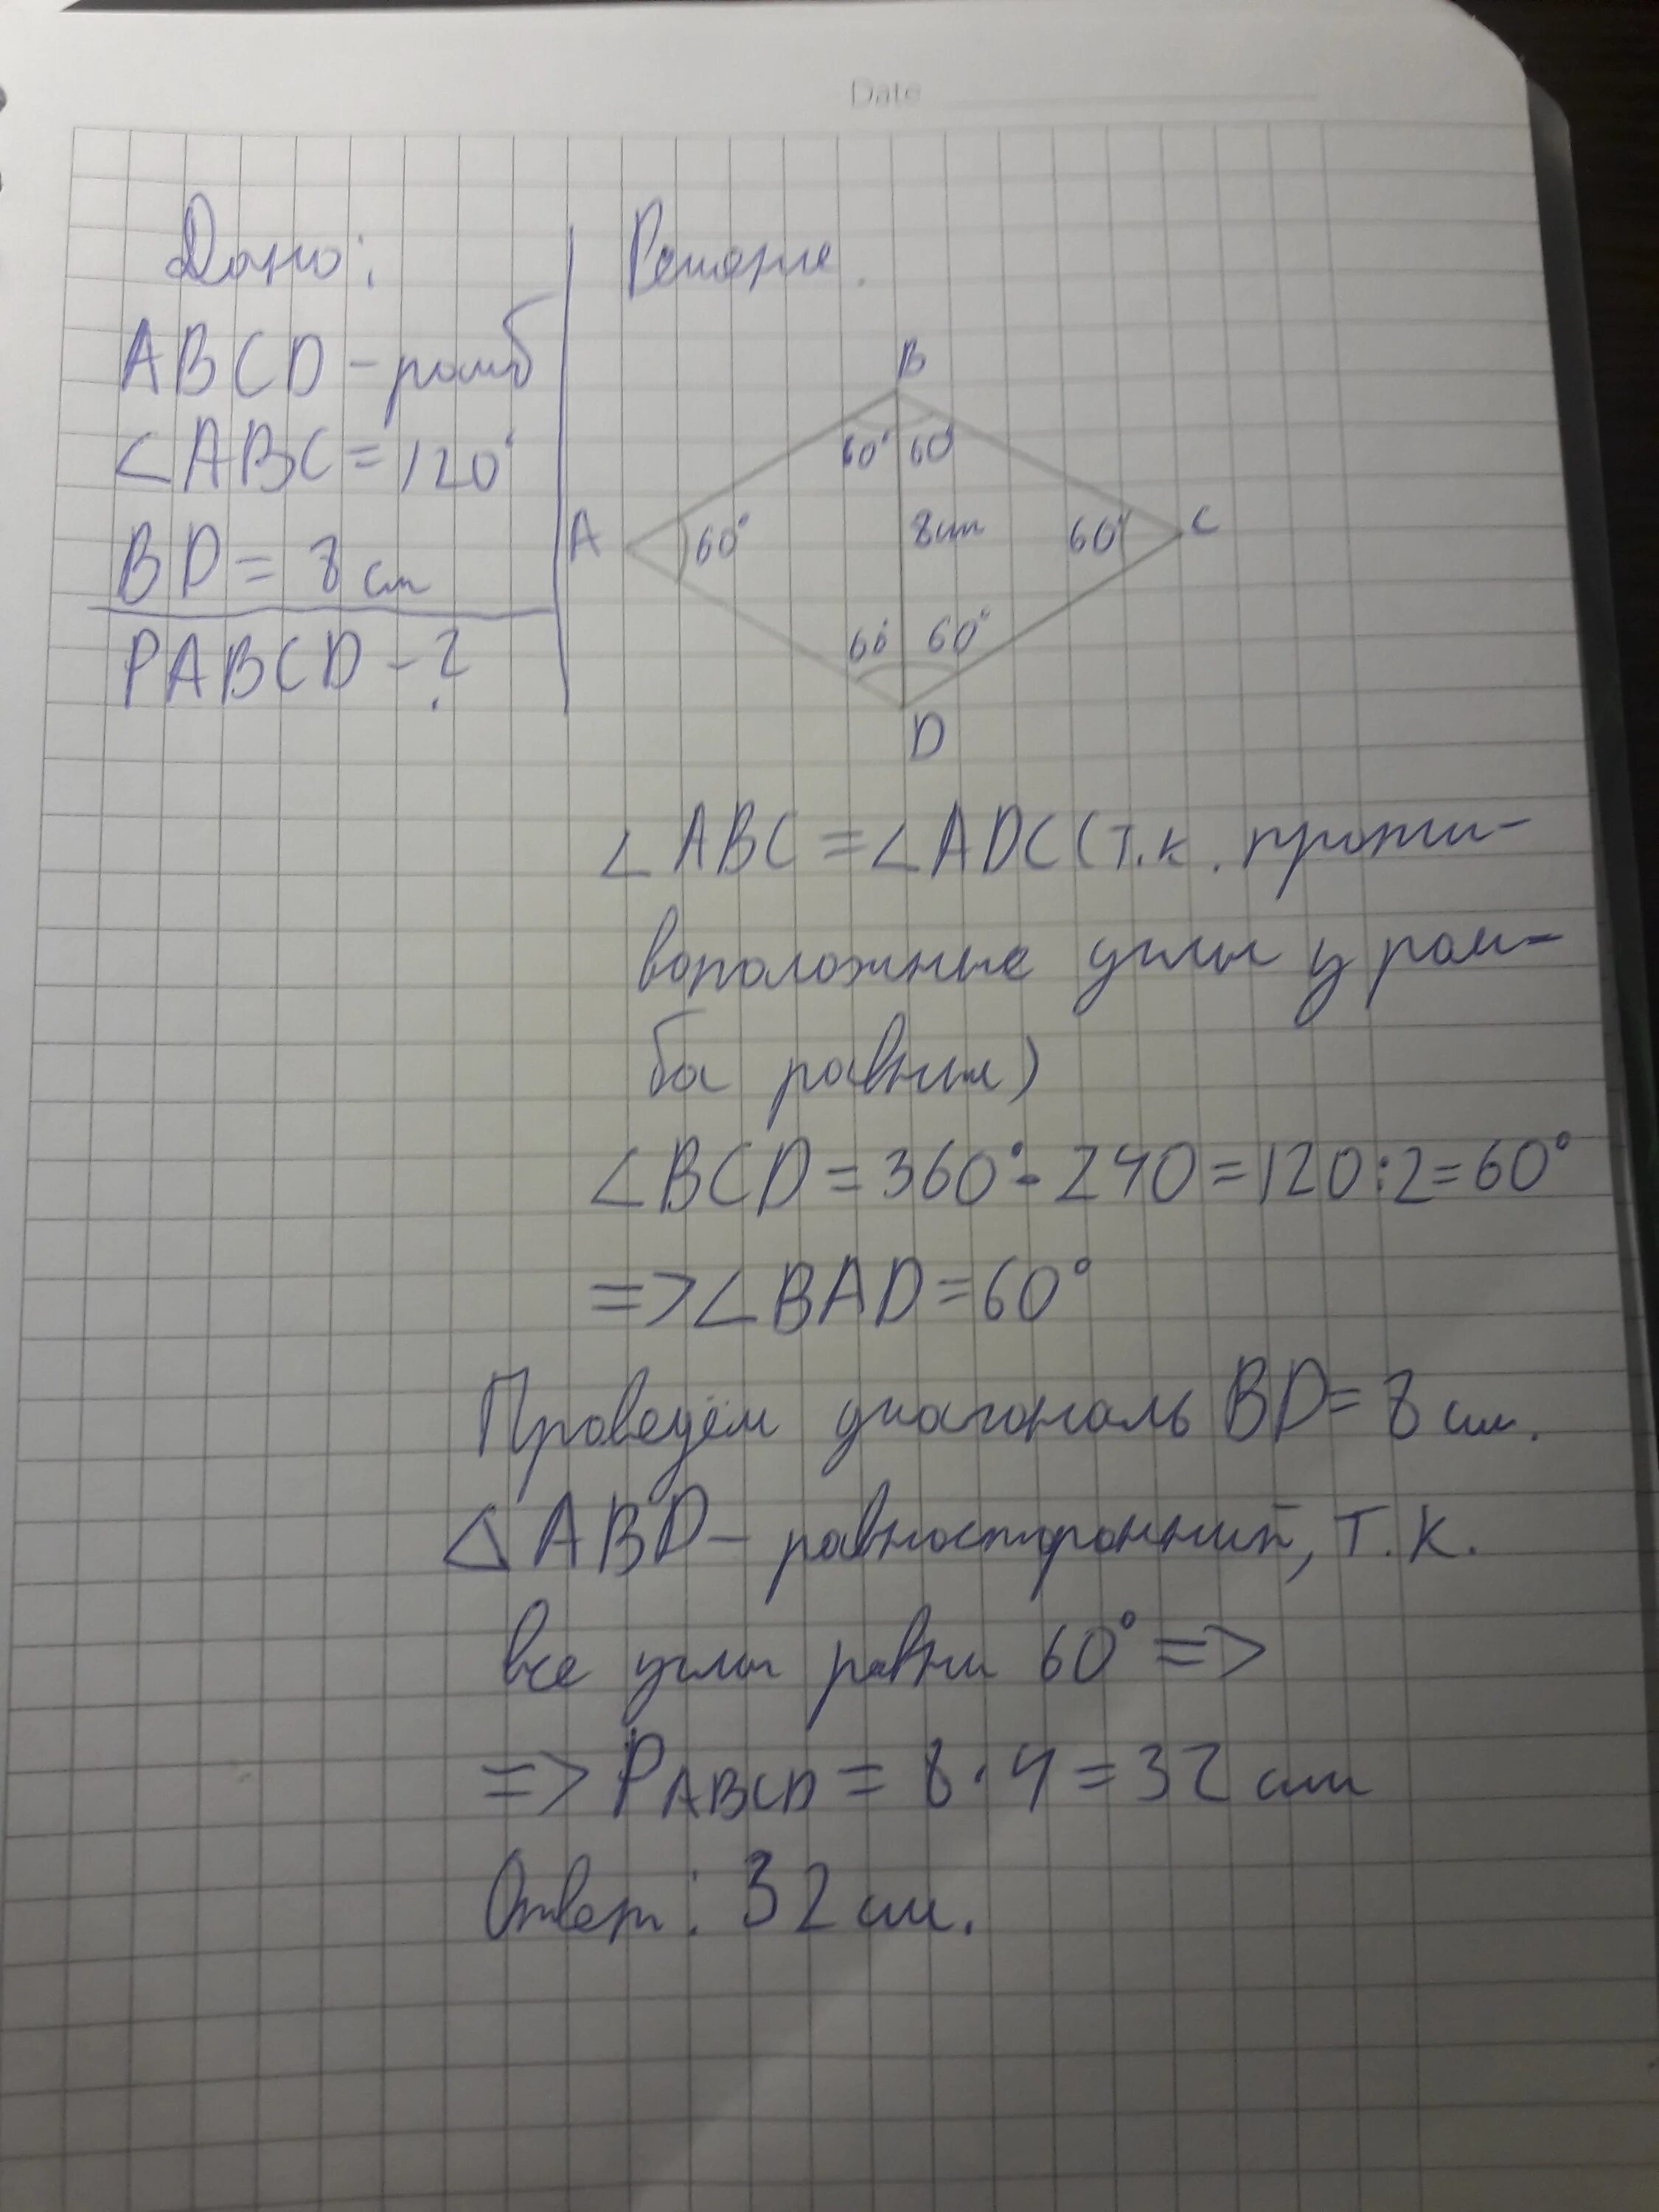 Date
Дано:
ABCD - ромб
∠ABC = 120°
BD = 8 см
PABCD - ?
Решение.
B
60° 60°
A 60° 8см 60° C
60° 60°
D
∠ABC = ∠ADC (т.к. проти-
воположные углы у ром-
ба равны)
∠BCD = 360° - 240 = 120 : 2 = 60°
=> ∠BAD = 60°
Проведём диагональ BD = 8 см.
△ABD - равносторонний, т.к.
все углы равны 60° =>
=> PABCD = 8 · 4 = 32 см
Ответ: 32 см.